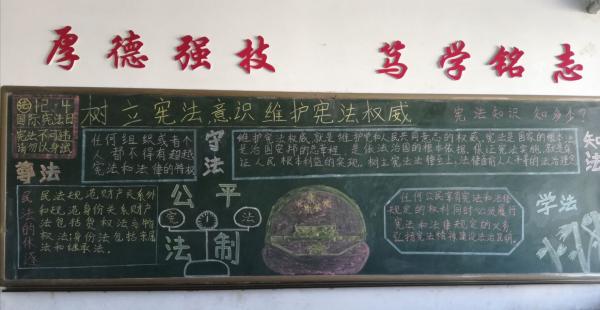 厚德强技
笃学铭志
12·4
国际宪法日
宪法不可违
请勿以身
树立宪法意识 维护宪法权威
宪法知识 知多少?
尊法
任何组织或者个
人都不得有超越
宪法和法律的特权
守法
维护宪法权威,就是维护党和人民共同意志的权威,宪法是国家的根本
是治国安邦的总章程,是依法治国的根本依据,保证宪法实施,就是保
证人民根本利益的实现。树立宪法法律至上,法律面前人人平等的法治理念
知法
民法的体系
民法规范财产关系
和规范身份关系财产
法包括物权法
权法;身份法包括亲属
法和继承法。
公平
宪
法
法制
任何公民享有宪法和法律
规定的权利同时必须履行
宪法和法律规定的义务
弘扬宪法精神建设法治昆明。
学法